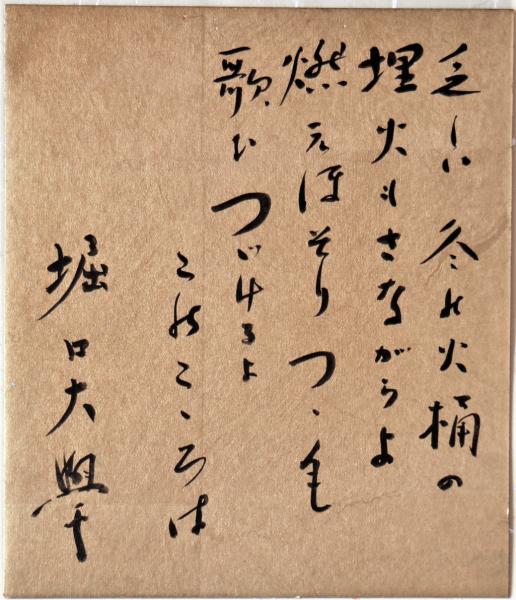 乏しい冬の火桶の
埋火もさながらよ
燃えほそりつゝも
歌ひつづけるよ
このこゝろは
堀口大學